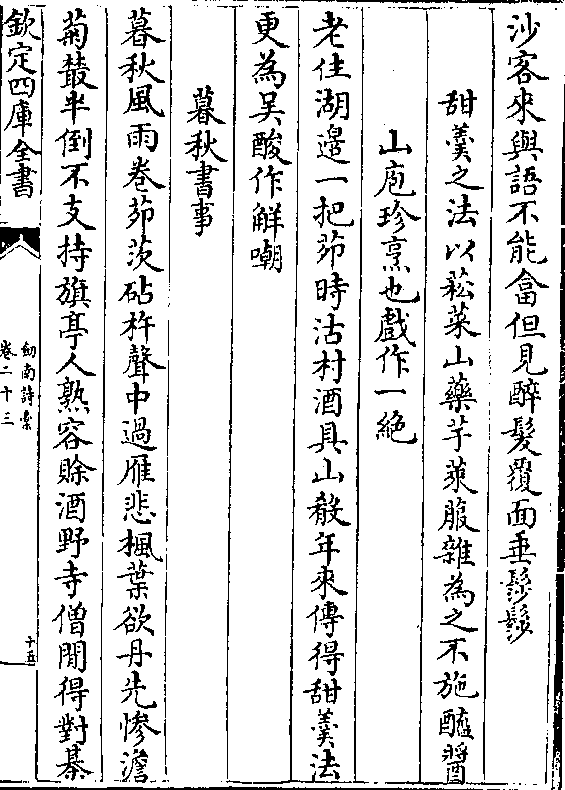 沙客來與語不能畣但見醉髮覆面垂鬖鬖
甜羮之法以菘菜山藥芋萊菔雜為之不施醯醬
山庖珍烹也戲作一絶
老住湖邉一把茆時沽村酒具山殽年來傳得甜羮法
更為呉酸作解嘲
暮秋書事
暮秋風雨卷茆茨砧杵聲中過雁悲楓葉欲丹先惨澹
菊叢半倒不支持旗亭人熟容賒酒野寺僧閒得對棊
欽定四庫全書
劒南詩稾
卷二十三
十五